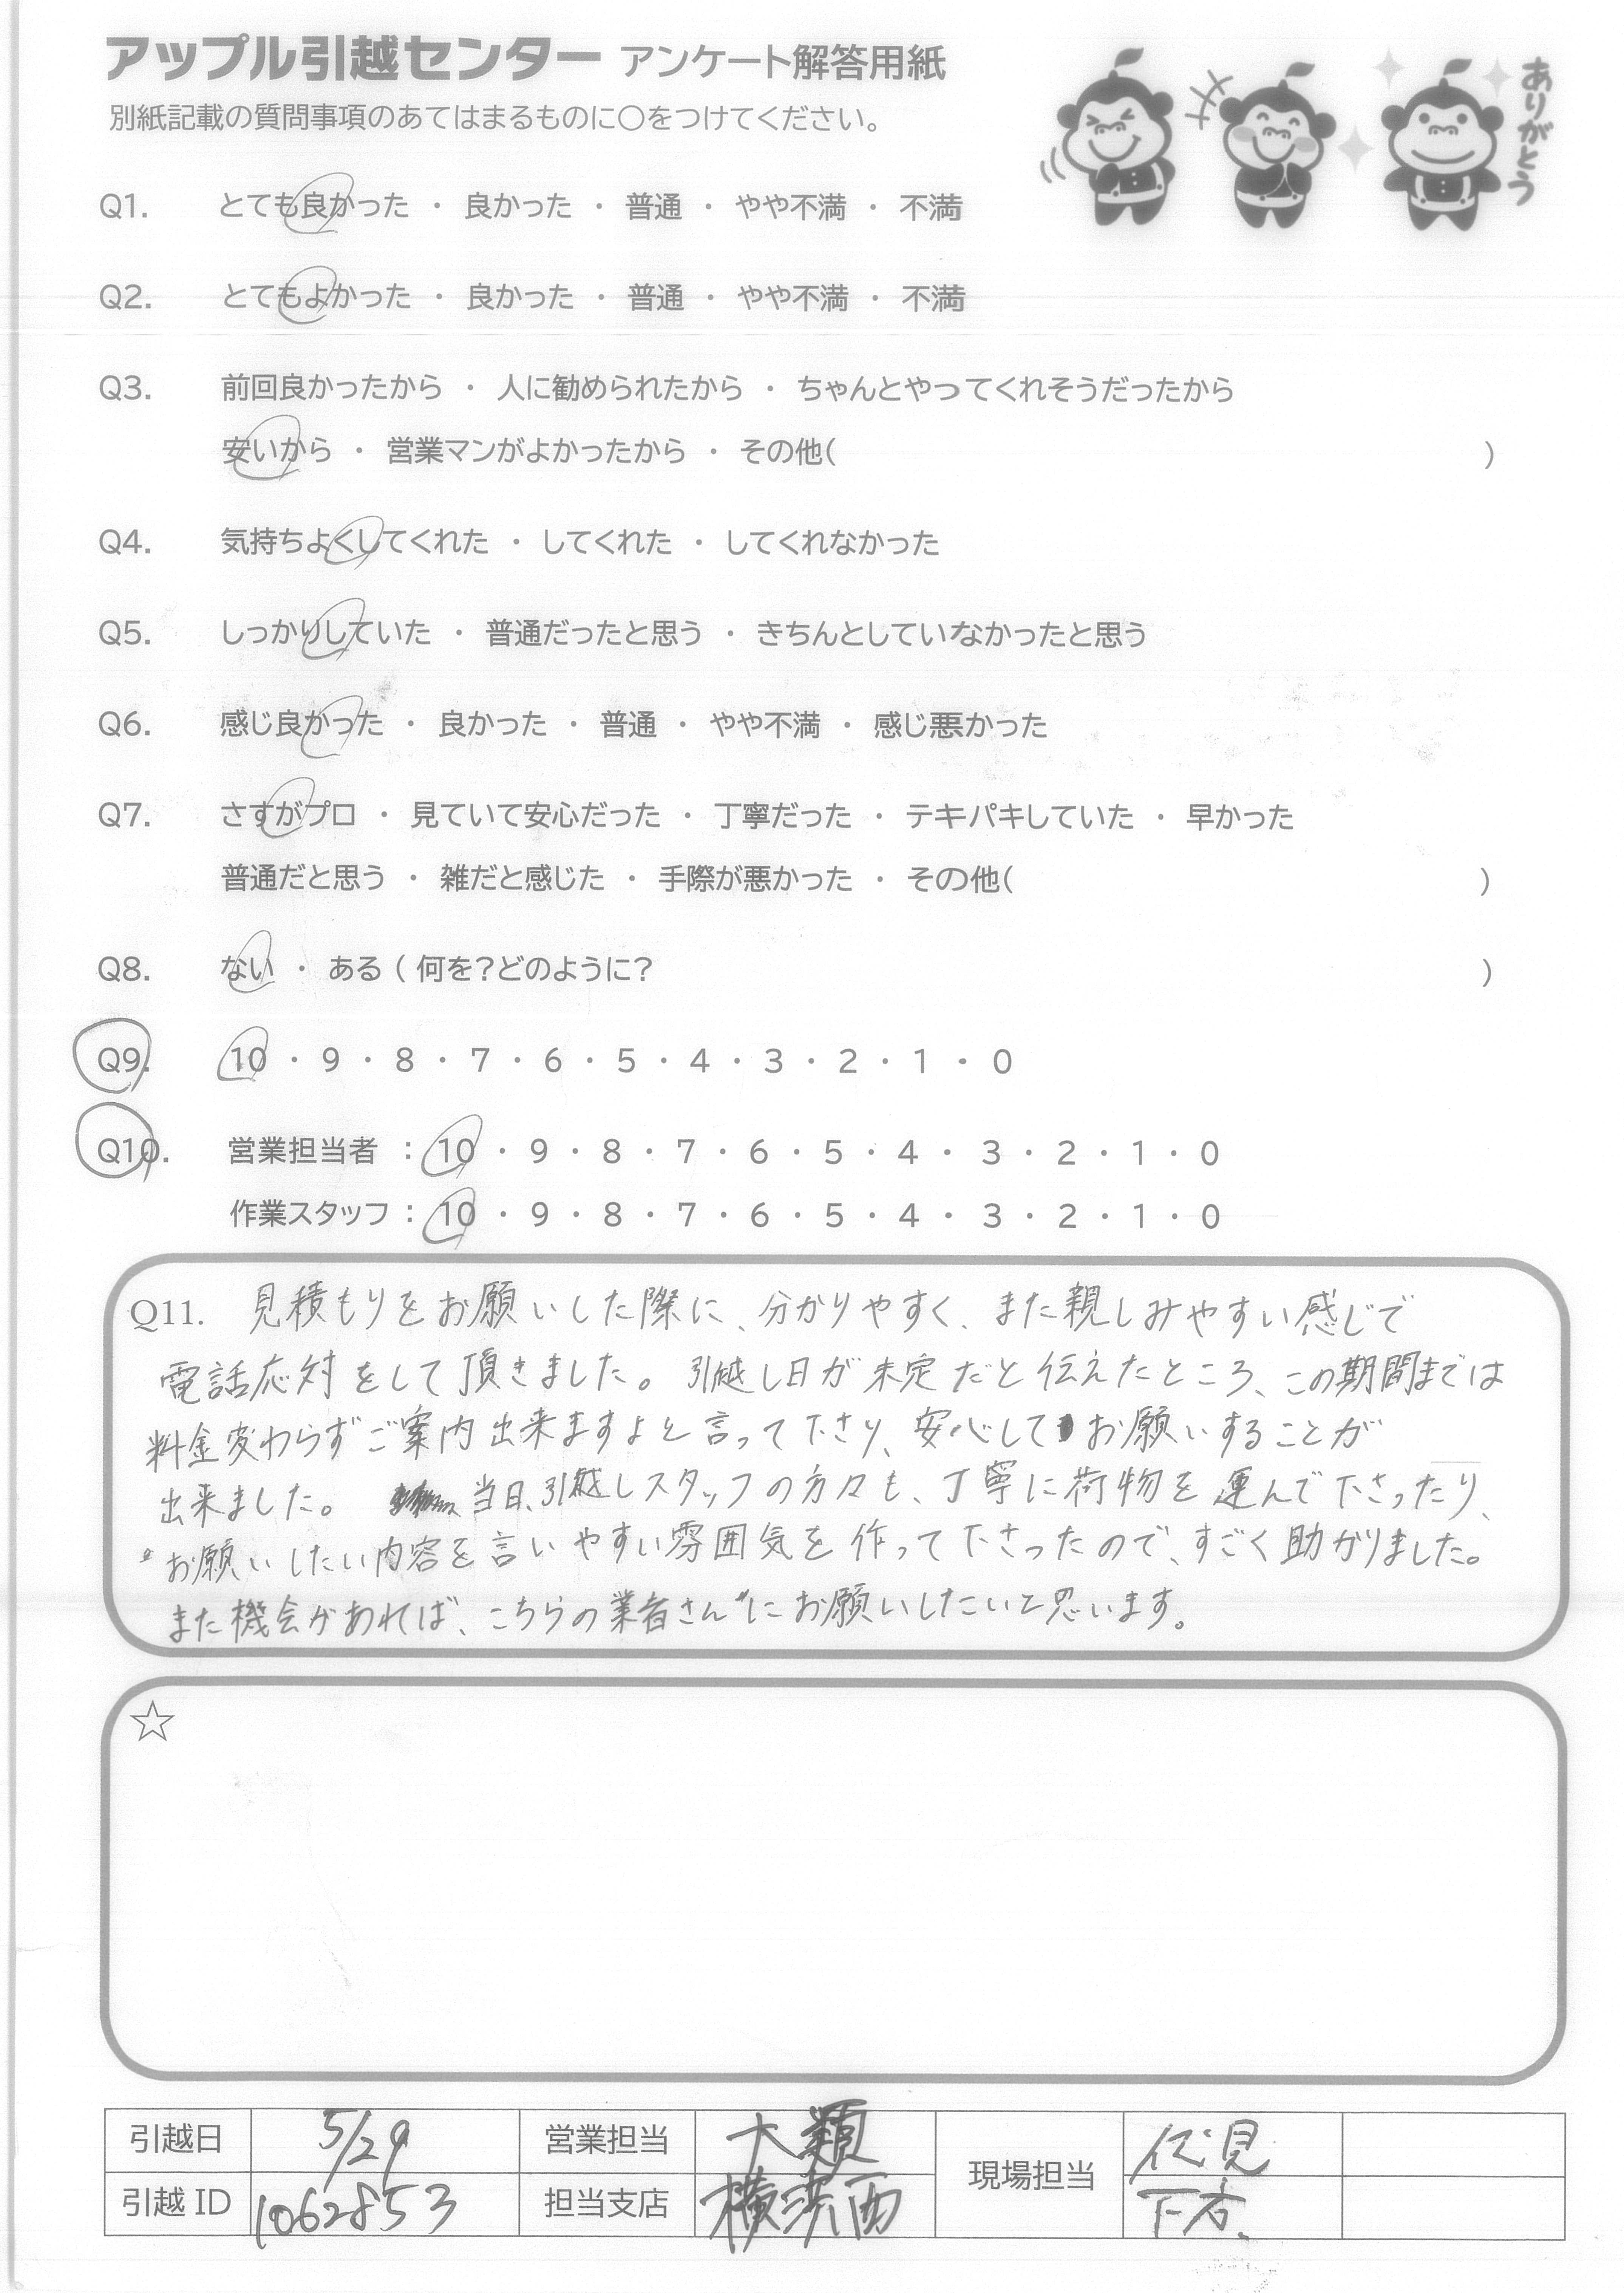 アップル引越センター アンケート解答用紙
ありがとう
別紙記載の質問事項のあてはまるものに○をつけてください。
Q1. とても良かった ・ 良かった ・ 普通 ・ やや不満 ・ 不満
Q2. とてもよかった ・ 良かった ・ 普通 ・ やや不満 ・ 不満
Q3. 前回良かったから ・ 人に勧められたから ・ ちゃんとやってくれそうだったから
安いから ・ 営業マンがよかったから ・ その他( )
Q4. 気持ちよくしてくれた ・ してくれた ・ してくれなかった
Q5. しっかりしていた ・ 普通だったと思う ・ きちんとしていなかったと思う
Q6. 感じ良かった ・ 良かった ・ 普通 ・ やや不満 ・ 感じ悪かった
Q7. さすがプロ ・ 見ていて安心だった ・ 丁寧だった ・ テキパキしていた ・ 早かった
普通だと思う ・ 雑だと感じた ・ 手際が悪かった ・ その他( )
Q8. ない ・ ある ( 何を?どのように? )
Q9. 10 ・ 9 ・ 8 ・ 7 ・ 6 ・ 5 ・ 4 ・ 3 ・ 2 ・ 1 ・ 0
Q10. 営業担当者 : 10 ・ 9 ・ 8 ・ 7 ・ 6 ・ 5 ・ 4 ・ 3 ・ 2 ・ 1 ・ 0
作業スタッフ : 10 ・ 9 ・ 8 ・ 7 ・ 6 ・ 5 ・ 4 ・ 3 ・ 2 ・ 1 ・ 0
Q11. 見積もりをお願いした際に、分かりやすく、また親しみやすい感じで
電話応対をして頂きました。引越し日が未定だと伝えたところ、この期間までは
料金変わらずご案内出来ますよと言って下さり、安心してお願いすることが
出来ました。 当日、引越しスタッフの方々も、丁寧に荷物を運んで下さったり、
お願いしたい内容を言いやすい雰囲気を作って下さったので、すごく助かりました。
また機会があれば、こちらの業者さんにお願いしたいと思います。
☆
引越日 5/29 営業担当 大類 現場担当 伏見
引越ID 1062853 担当支店 横浜西 下方